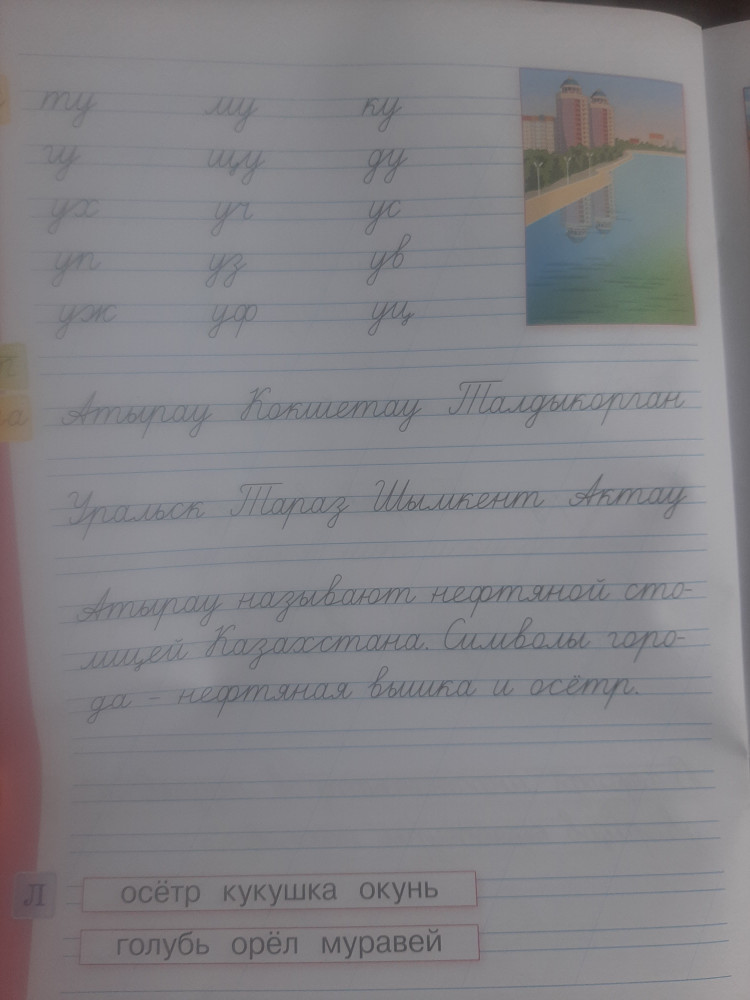 ту му ку
гу щу ду
ух уч ус
уп уз ув
уж уф уц
Атырау Кокшетау Талдыкорган
Уральск Тараз Шымкент Актау
Атырау называют нефтяной сто-
лицей Казахстана. Символы горо-
да – нефтяная вышка и осётр.
Л
осётр кукушка окунь
голубь орёл муравей